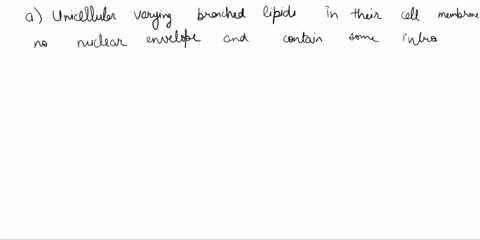 a) Unicellular varying branched lipids in their cell membrane
no nuclear envelope and contain some intro